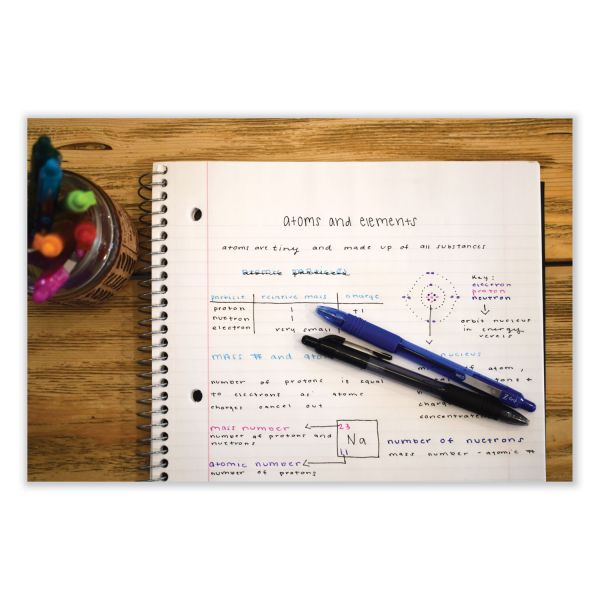 atoms and elements
atoms are tiny and made up of all substances
Key:
electron
proton
neutron
particle relative mass charge
proton 1 +1
nuetron 1
electron very small
orbit nucleus
in energy
levels
mass # and
nucleus
number of protons is equal
to electrons as atoms
charges cancel out
mass number
number of protons and
nuetrons
23
Na
11
atomic number
number of protons
number of nuetrons
mass number - atomic #